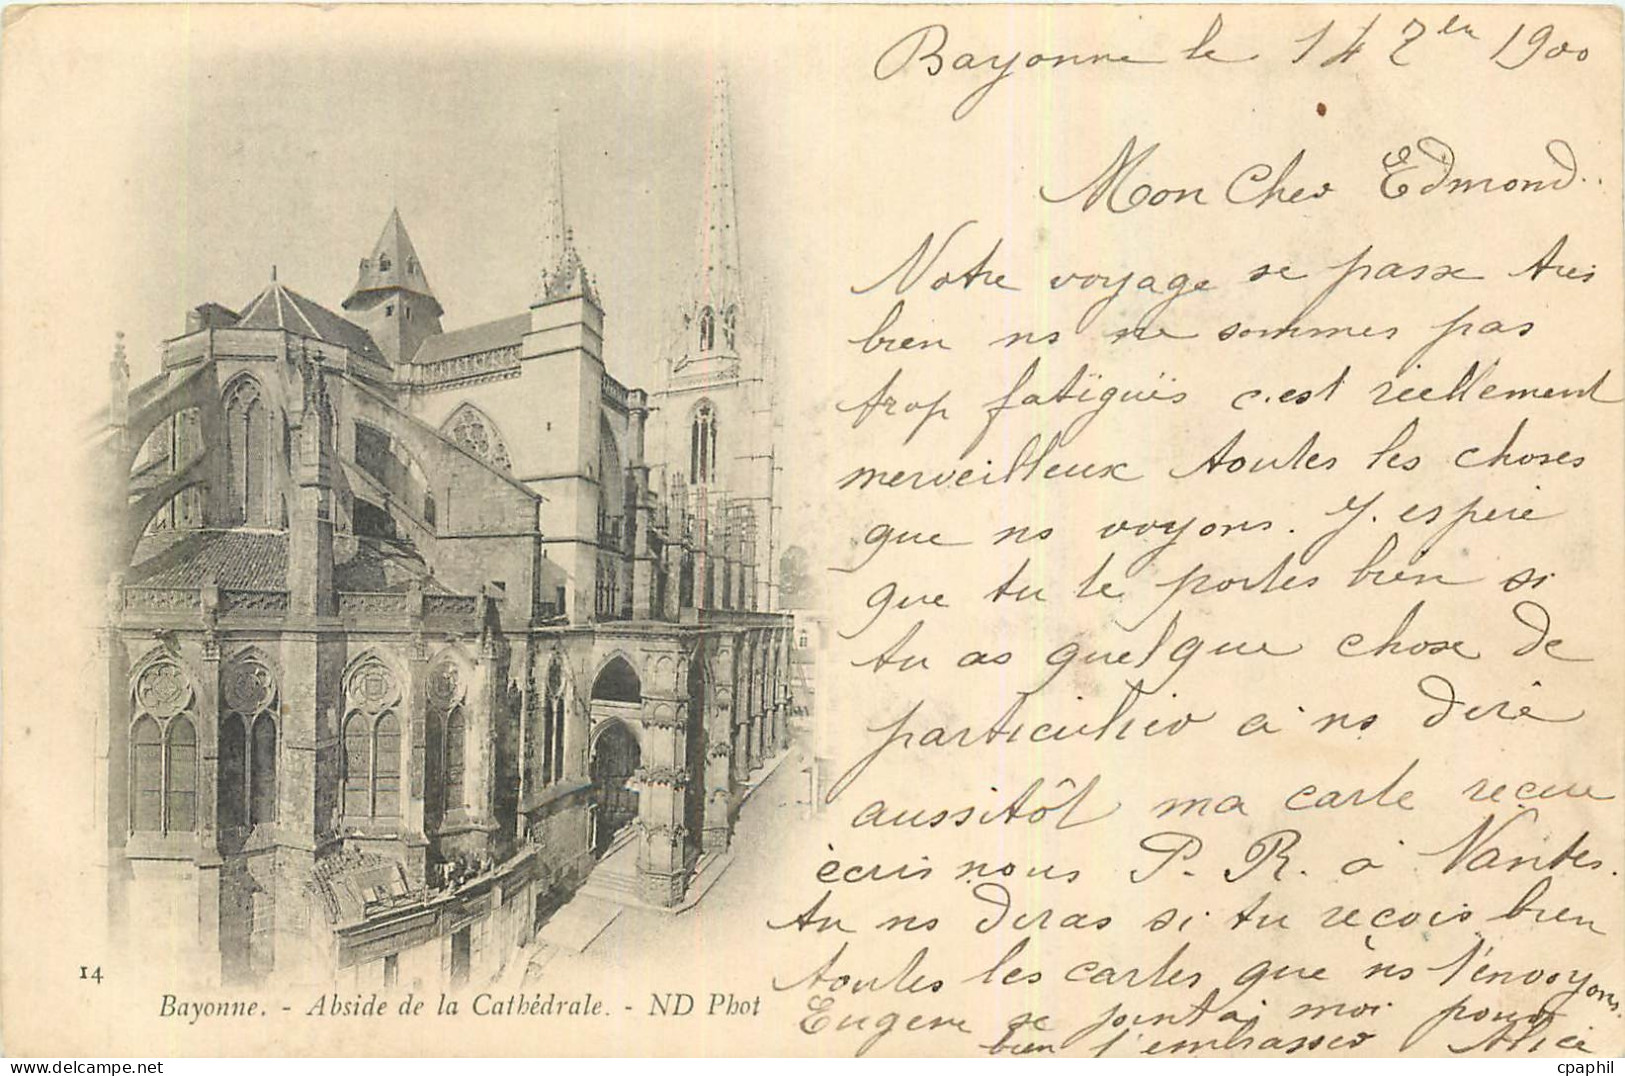 Bayonne le 14 7bre 1900
Mon Cher Edmond.
Notre voyage se passe très
bien ns ne sommes pas
trop fatigués c'est réellement
merveilleux toutes les choses
que ns voyons. J'espère
que tu te portes bien si
tu as quelque chose de
particulier à ns dire
aussitôt ma carte reçue
écris nous P. R. à Nantes.
tu ns diras si tu reçois bien
toutes les cartes que ns t'envoyons.
Eugène se joint à moi pour
bien t'embrasser Alice
14
Bayonne. - Abside de la Cathédrale. - ND Phot
cpaphil